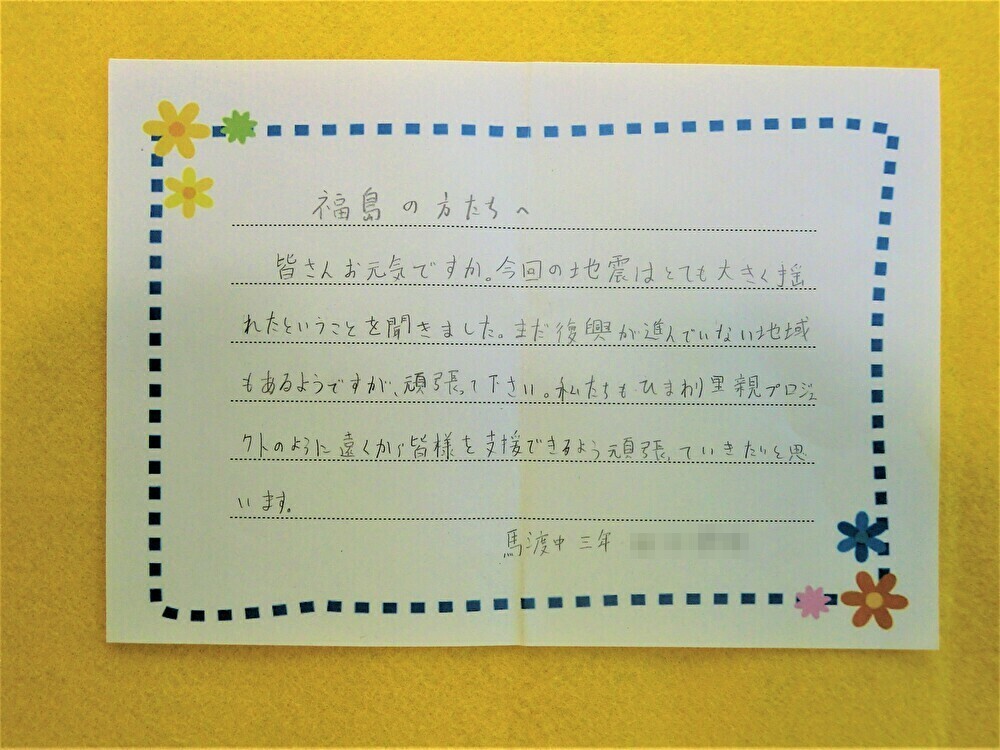 福島の方たちへ
皆さんお元気ですか。今回の地震はとても大きく揺
れたということを聞きました。まだ復興が進んでいない地域
もあるようですが、頑張って下さい。私たちもひまわり里親プロジェ
クトのように遠くから皆様を支援できるよう頑張っていきたいと思
います。
馬渡中 三年